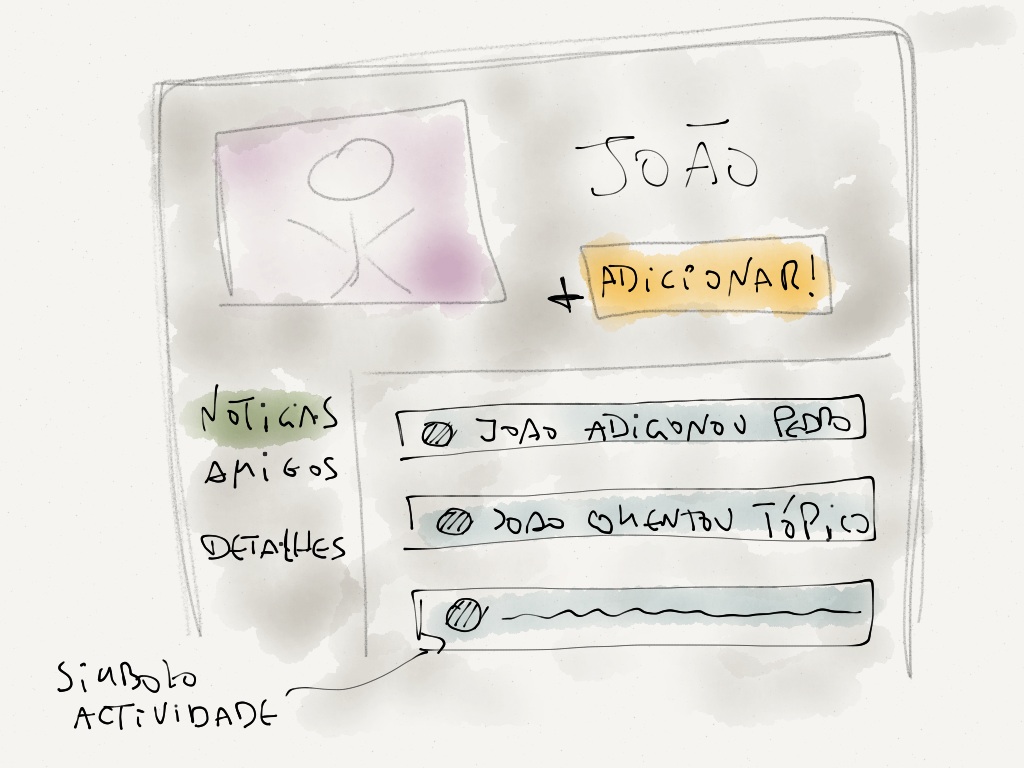 JOÃO
+ ADICIONAR!
NOTICIAS
AMIGOS
DETALHES
JOAO ADICIONOU PEDRO
JOAO COMENTOU TÓPICO
SIMBOLO
ACTIVIDADE